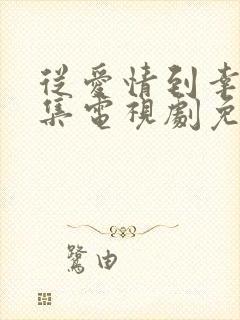 從愛情到幸
集電視劇免
鷺由